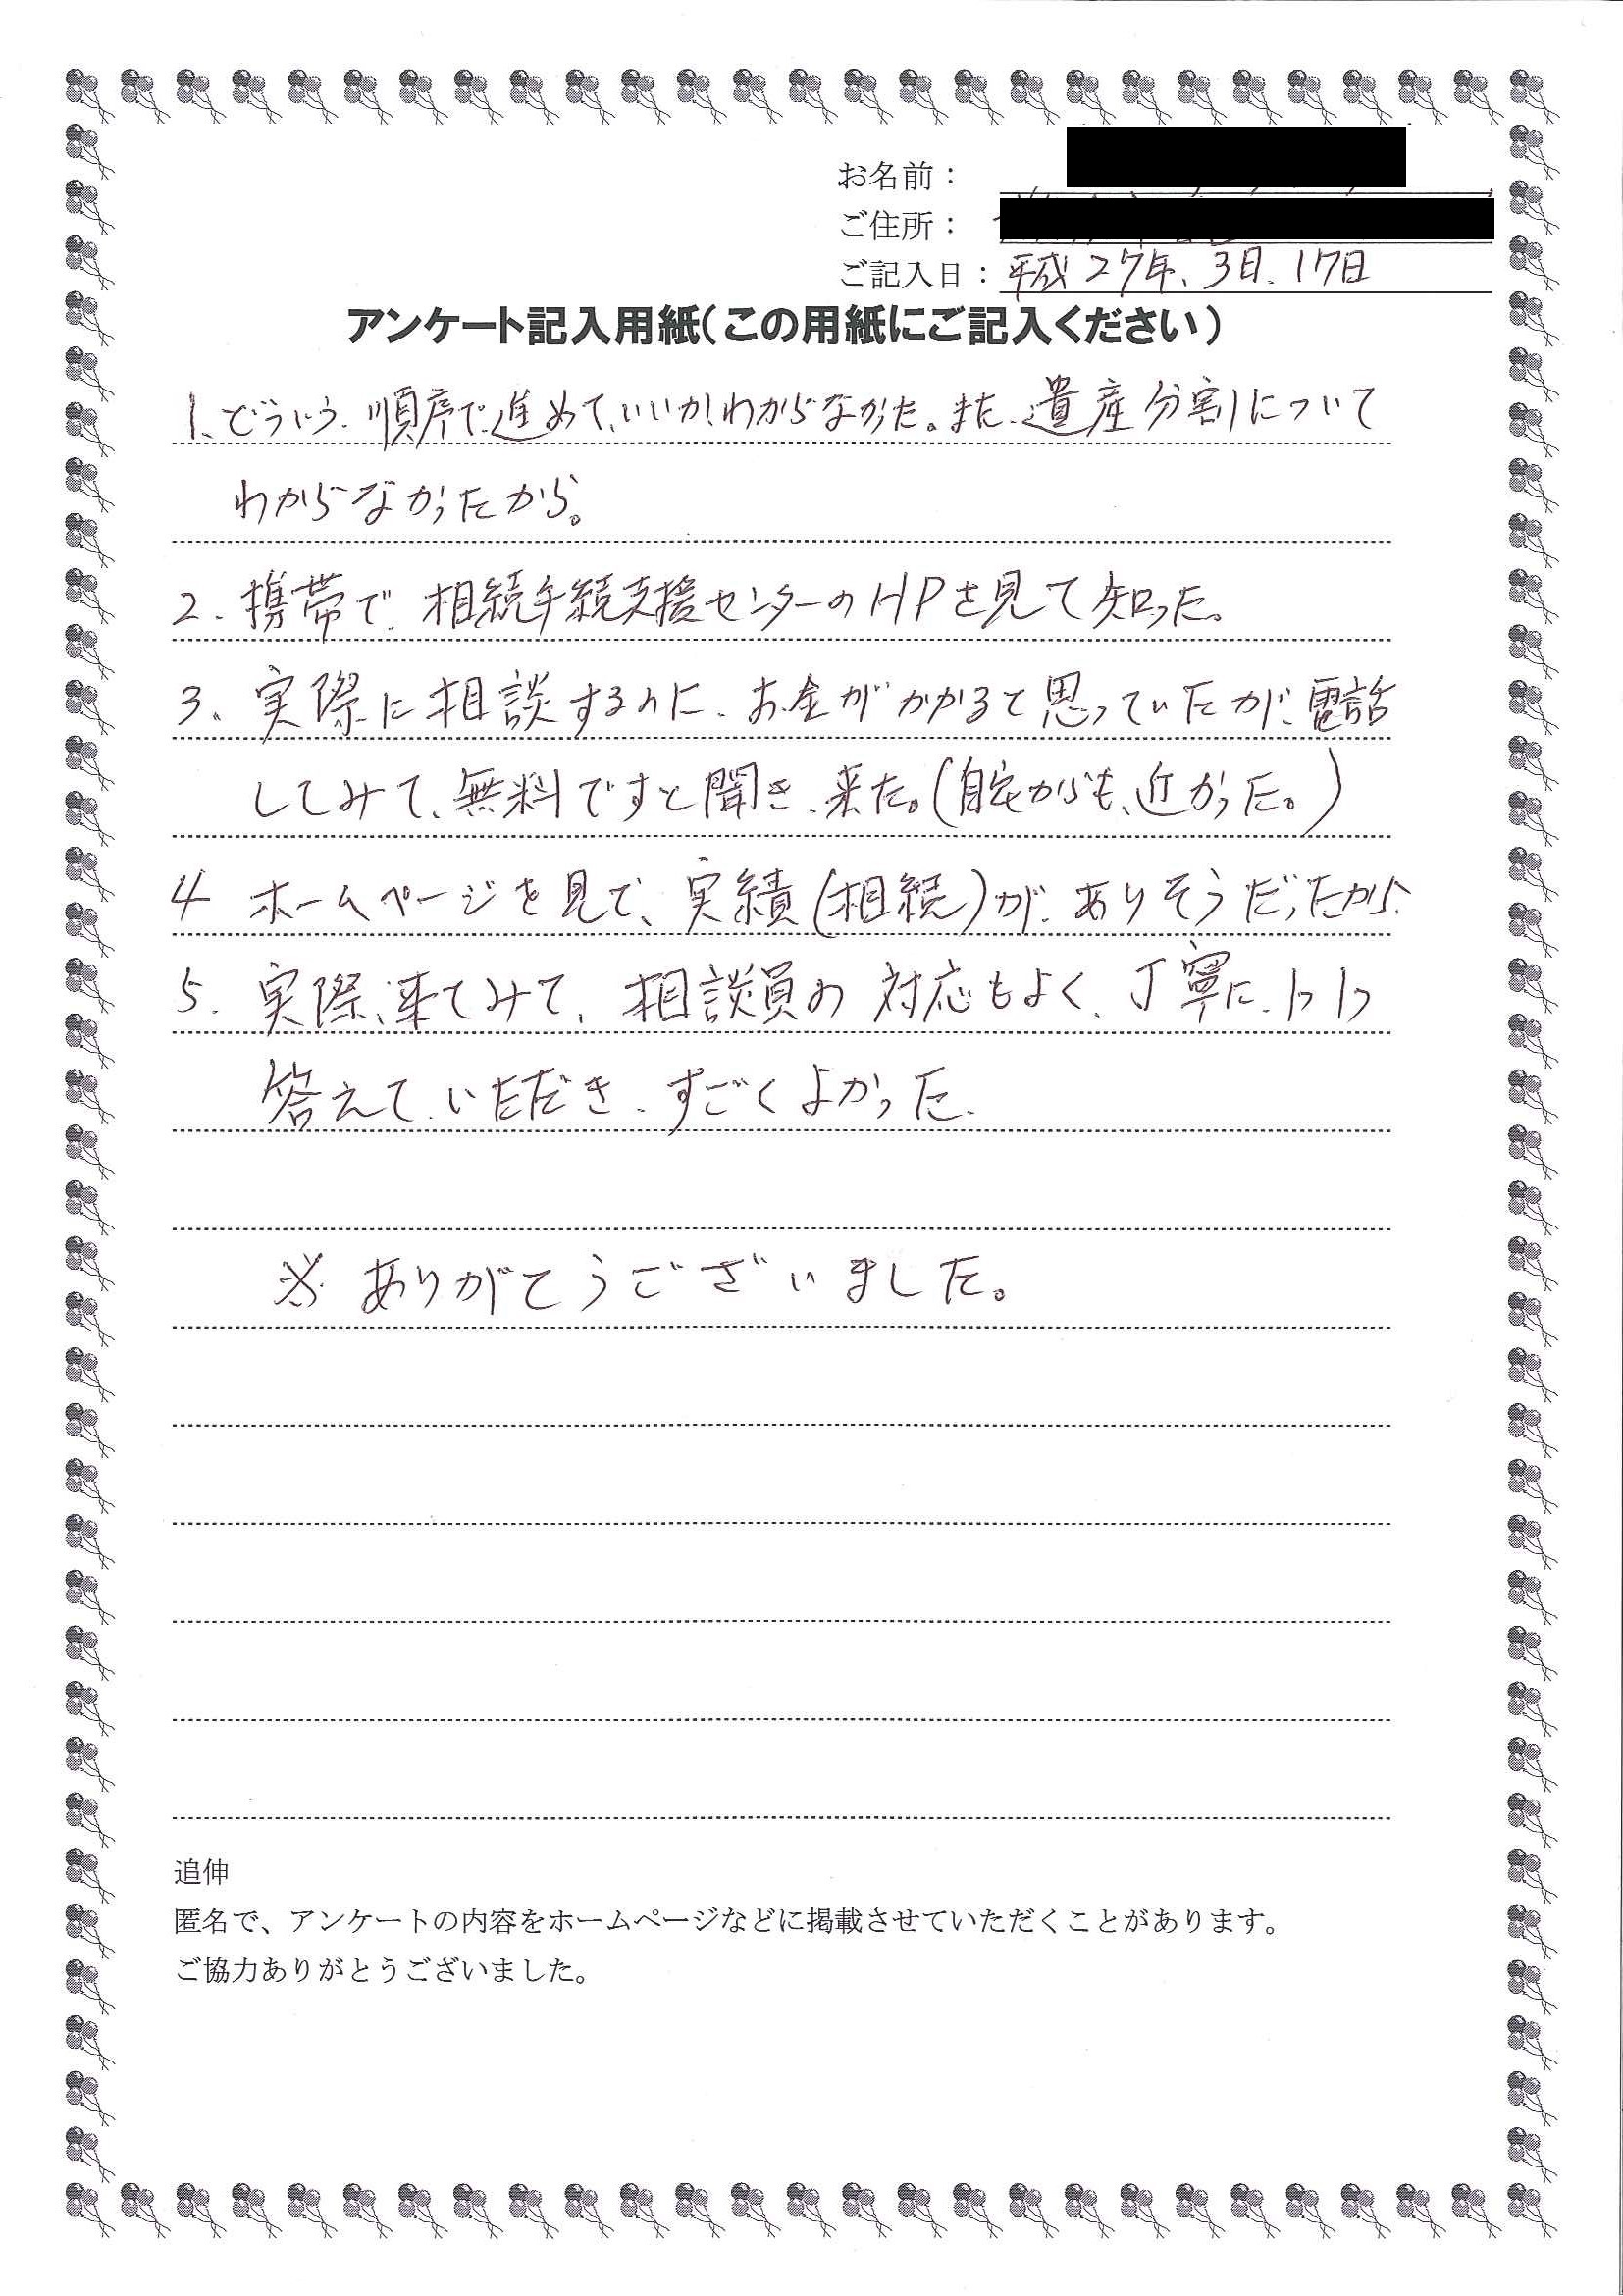 お名前：
ご住所：
ご記入日：平成27年、3月、17日
アンケート記入用紙（この用紙にご記入ください）
1、どういう、順序で、進めて、いいか、わからなかった。また、遺産分割について
わからなかったから。
2. 携帯で、相続手続支援センターのHPを見て知った。
3、実際に相談するのに、お金がかかると思っていたが、電話
してみて、無料ですと聞き、来た。（自宅からも、近かった。）
4 ホームページを見て、実績（相続）が、ありそうだったから、
5. 実際、来てみて、相談員の対応もよく、丁寧に、
答えて、いただき、すごくよかった、
※ ありがとうございました。
追伸
匿名で、アンケートの内容をホームページなどに掲載させていただくことがあります。
ご協力ありがとうございました。